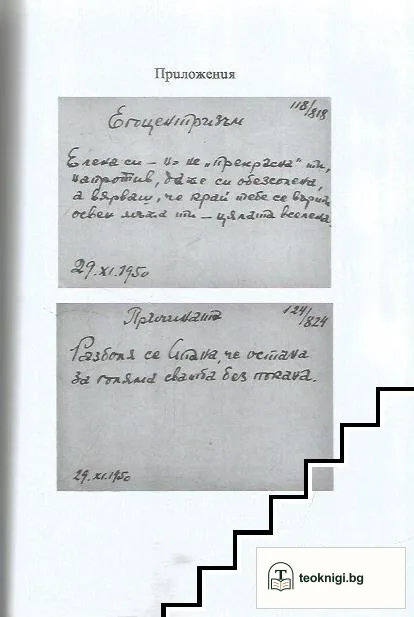 Приложения
118/818
Егоцентризъм
Елена си – но не „прекрасна" ти,
напротив, даже си обезсолена,
а вярваш, че край тебе се върти
освен мъжа ти – цялата вселена.
29.XI.1950
124/824
Причината
Разболя се Стана, че остана
за голяма сватба без покана.
29.XI.1950
teoknigi.bg